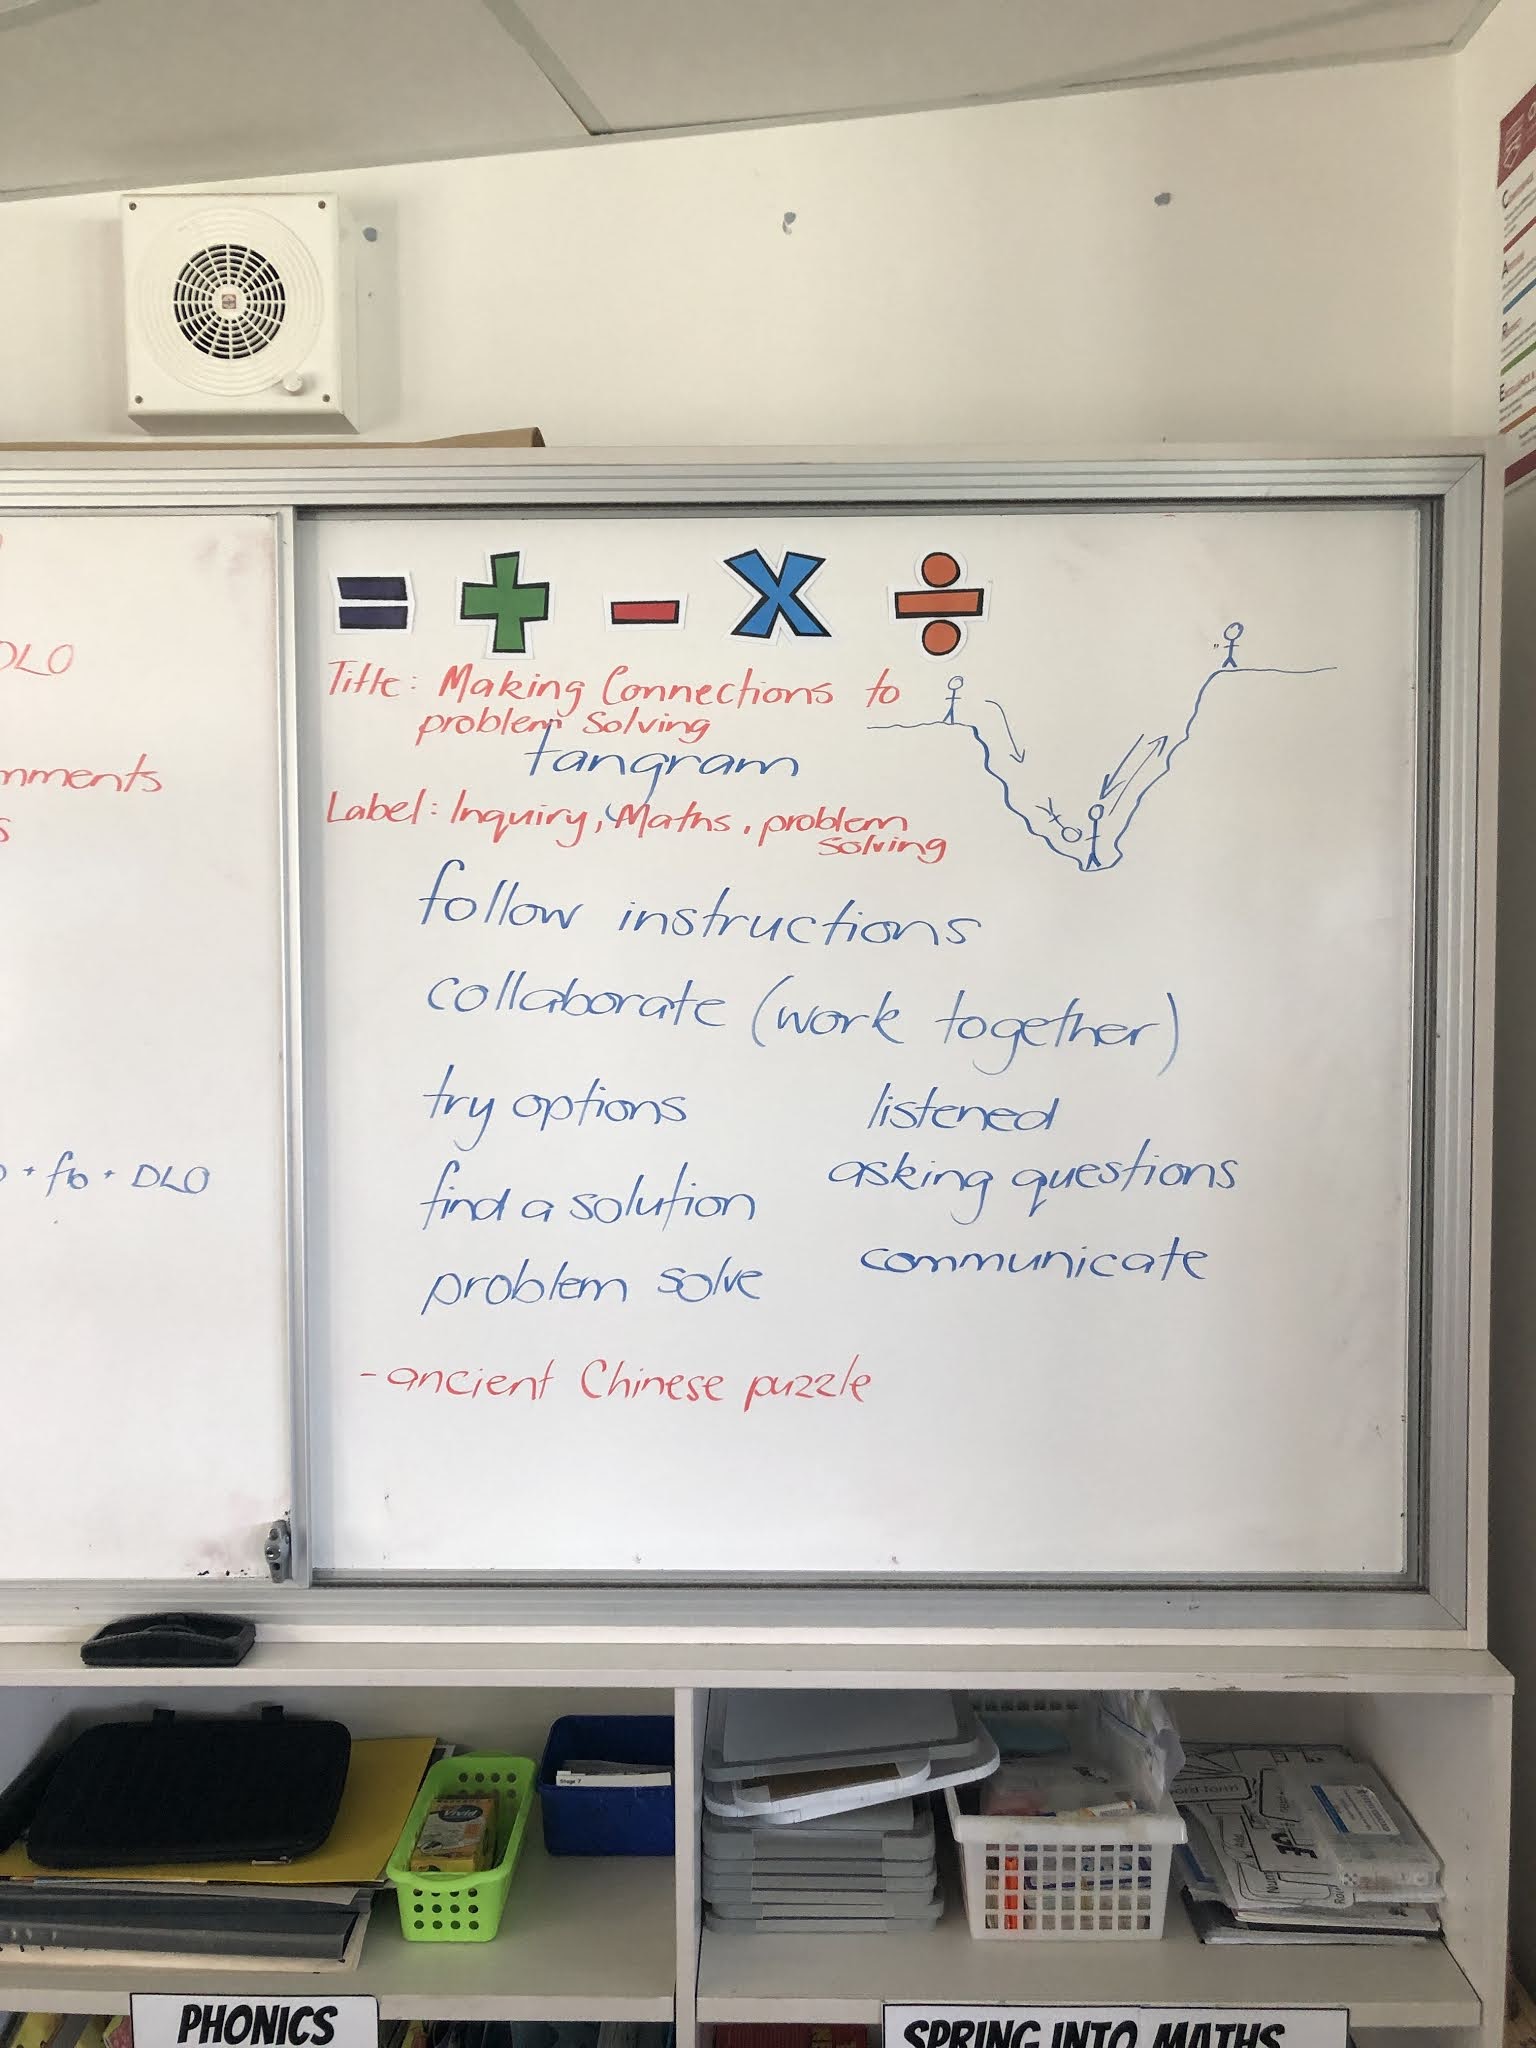 DLO
mments
s
+ fb + DLO
= + - x ÷
Title: Making Connections to
problem solving
tangram
Label: Inquiry, Maths, problem
solving
follow instructions
collaborate (work together)
try options
find a solution
problem solve
listened
asking questions
communicate
- ancient Chinese puzzle
Vivid
Stage 7
word form
PHONICS
SPRING INTO MATHS